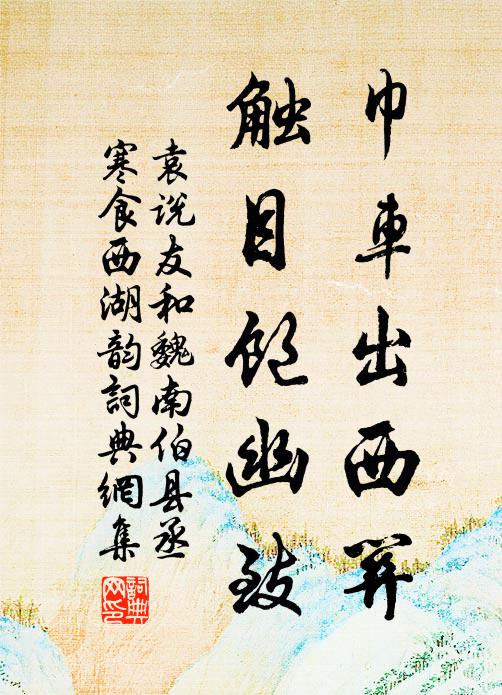 巾車出西关
触目飽幽致
袁说友和魏南伯县丞
寒食西湖韵詞典網集
詞典
网印